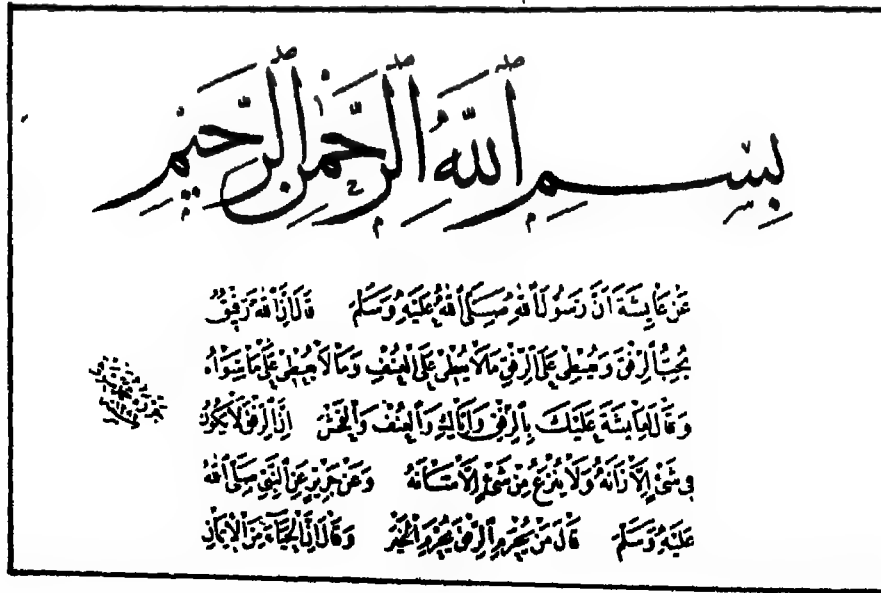 بِسْمِ ٱللَّهِ ٱلرَّحْمٰنِ ٱلرَّحِيمِ
عَنْ عَايِشَةَ اَنَّ رَسُولَ ٱللهِ صَلَّى ٱللهُ عَلَيْهِ وَسَلَّمَ قَالَ اِنَّ ٱللهَ رَفِيقٌ
يُحِبُّ ٱلرِّفْقَ وَيُعْطِى عَلَى ٱلرِّفْقِ مَا لَا يُعْطِى عَلَى ٱلْعُنْفِ وَمَا لَا يُعْطِى عَلَى مَا سِوَاهُ
وَقَالَ لِعَايِشَةَ عَلَيْكَ بِٱلرِّفْقِ وَاِيَّاكِ وَٱلْعُنْفَ وَٱلْفُحْشَ اِنَّ ٱلرِّفْقَ لَا يَكُونُ
فِى شَىْءٍ اِلَّا زَانَهُ وَلَا يُنْزَعُ مِنْ شَىْءٍ اِلَّا شَانَهُ وَعَنْ جَرِيرٍ عَنِ ٱلنَّبِىِّ صَلَّى ٱللهُ
عَلَيْهِ وَسَلَّمَ قَالَ مَنْ يُحْرَمِ ٱلرِّفْقَ يُحْرَمِ ٱلْخَيْرَ وَقَالَ اِنَّ ٱلْحَيَاءَ مِنَ ٱلْاِيمَانِ